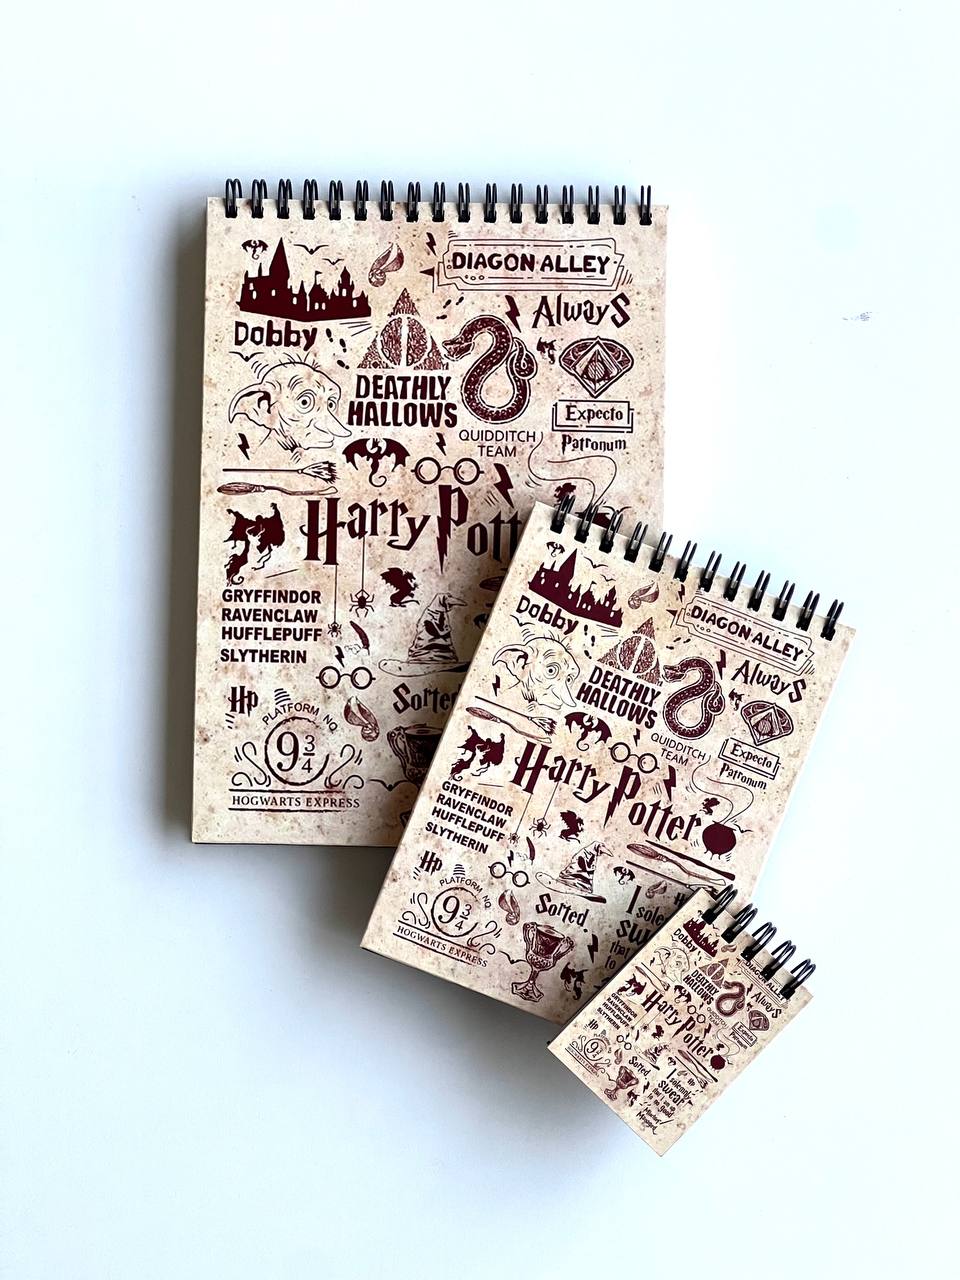 DIAGON ALLEY
Always
Dobby
DEATHLY
HALLOWS
Expecto
Patronum
QUIDDITCH
TEAM
Harry Pott
GRYFFINDOR
RAVENCLAW
HUFFLEPUFF
SLYTHERIN
Sorted
Hp
PLATFORM NO.
9 3/4
HOGWARTS EXPRESS
Dobby
DIAGON ALLEY
Always
DEATHLY
HALLOWS
QUIDDITCH
TEAM
Expecto
Patronum
Harry Potter
GRYFFINDOR
RAVENCLAW
HUFFLEPUFF
SLYTHERIN
Hp
PLATFORM NO.
9 3/4
HOGWARTS EXPRESS
Sorted
I
that
to
Dobby
DIAGON ALLEY
Always
DEATHLY
HALLOWS
QUIDDITCH
TEAM
Expecto
Patronum
Harry Potter
GRYFFINDOR
RAVENCLAW
HUFFLEPUFF
SLYTHERIN
Hp
9 3/4
HOGWARTS EXPRESS
Sorted
I solemnly
swear
that I am up
to no good